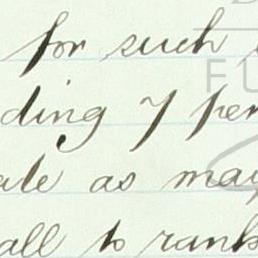 for such
ding 7 per
ate as may
all to rank